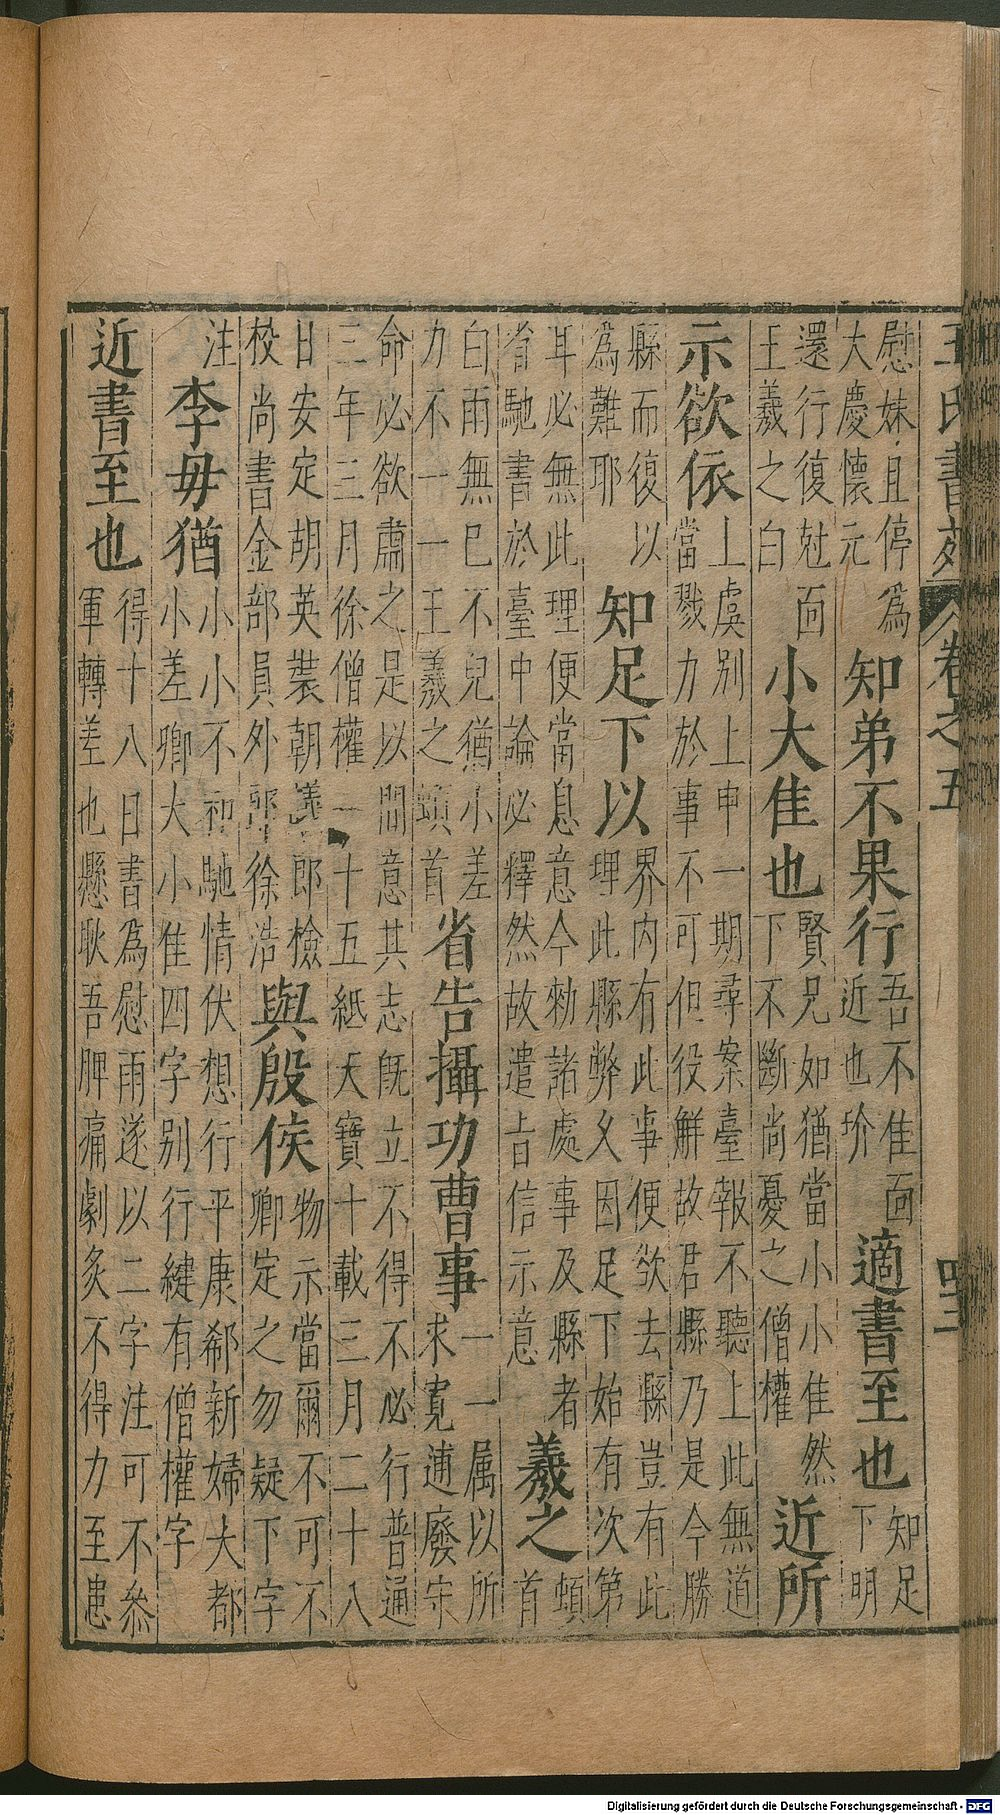 王氏書苑 卷之五 四三
慰妹且停為
大慶懷元
知弟不果行
吾不佳面
近也玠
適書至也
知足
下明
還行復尅面
王羲之白
小大佳也
賢兄如猶當小小佳然
下不斷尚憂之僧權
近所
示欲依
上虞別上申一期尋案臺報不聽上此無道
當戮力於事不可但役解故君縣乃是今勝
縣而復以
為難耶
知足下以
界内有此事便欲去縣豈有此
理此縣弊久因足下始有次第
耳必無此理便當息意今勑諸處事及縣者
省馳書於臺中論必釋然故遣旨信示意
羲之
頓
首
白雨無已不兒猶小差
力不一一王羲之頓首
省告攝功曹事
一一属以所
求寛逋廢守
命必欲肅之是以間意其志既立不得不必行普通
三年三月徐僧權二十五紙天寶十載三月二十八
日安定胡英裝朝議郎檢
校尚書金部員外郎徐浩
與殷侯
物示當爾不可不
卿定之勿疑下字
注
李毋猶
小小不和馳情伏想行平康郗新婦大都
小差卿大小佳四字別行縫有僧權字
近書至也
得十八日書為慰雨遂以二字注可不叅
軍轉差也懸耿吾脾痛劇灸不得力至患
Digitalisierung gefördert durch die Deutsche Forschungsgemeinschaft - DFG